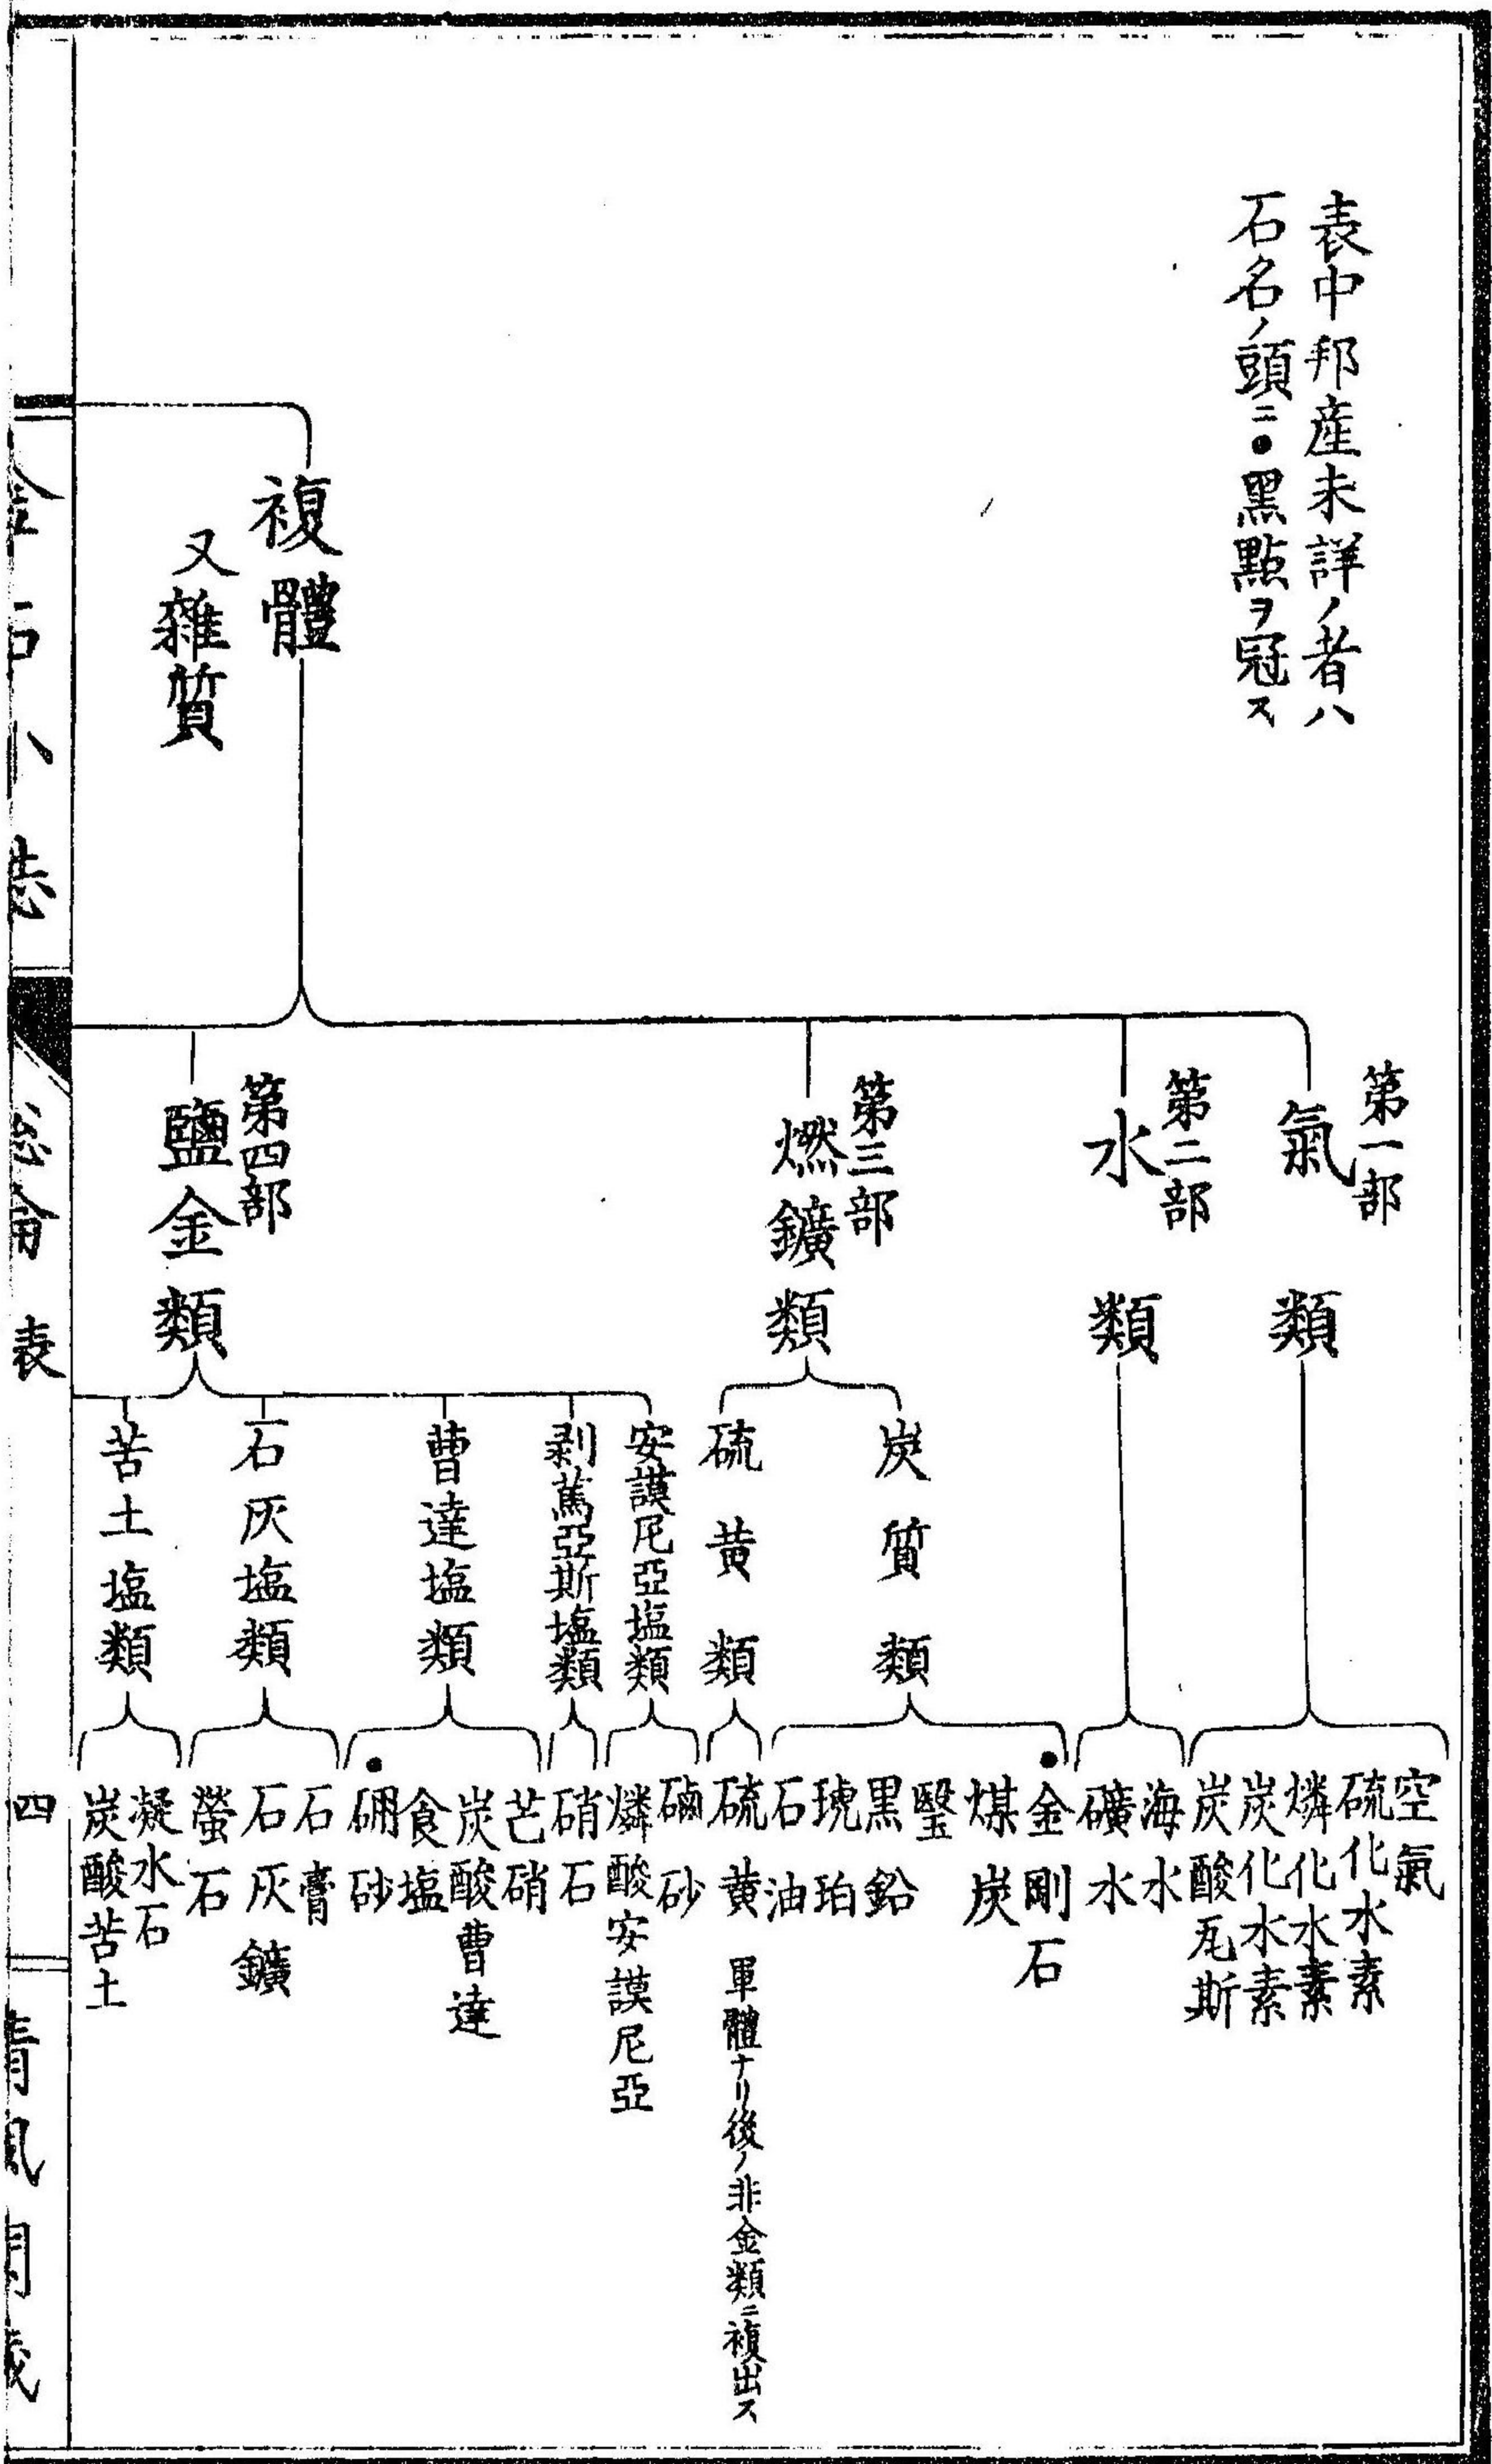 表中邦産未詳ノ者ハ
石名ノ頭ニ●黒點ヲ冠ス
複體
又雜質
第一部
氣類
空氣
硫化水素
燐化水素
炭化水素
炭酸瓦斯
第二部
水類
海水
礦水
第三部
燃鑛類
炭質類
●金剛石
煤炭
黒鉛
琥珀
石油
硫黄類
硫黄 單體ナリ後ノ非金類ニ複出ス
第四部
鹽金類
安謨尼亞塩類
磠砂
燐酸安謨尼亞
剥篤亞斯塩類
硝石
曹達塩類
芒硝
炭酸曹達
食塩
●硼砂
石灰塩類
石膏
石灰鑛
螢石
苦土塩類
凝水石
炭酸苦土
金石小誌
総論 表
四